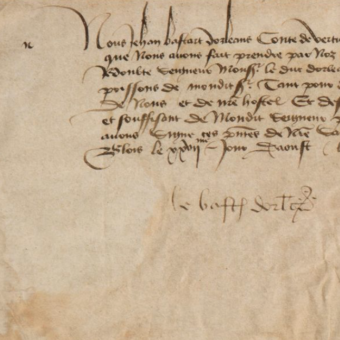 Nous Jehan bastart dorleans Conte de vertu
que Nous avons fait prendre par Noz
Redoubte seigneur Monsr le duc dorle
poissons de mondit sr Tant pour d
De Nous et de nre hostel Et des
et souffisant de Mondit seigneur
avons signe ces pntes de nre
Blois le xxviime Jour Daoust
le bast dorleans